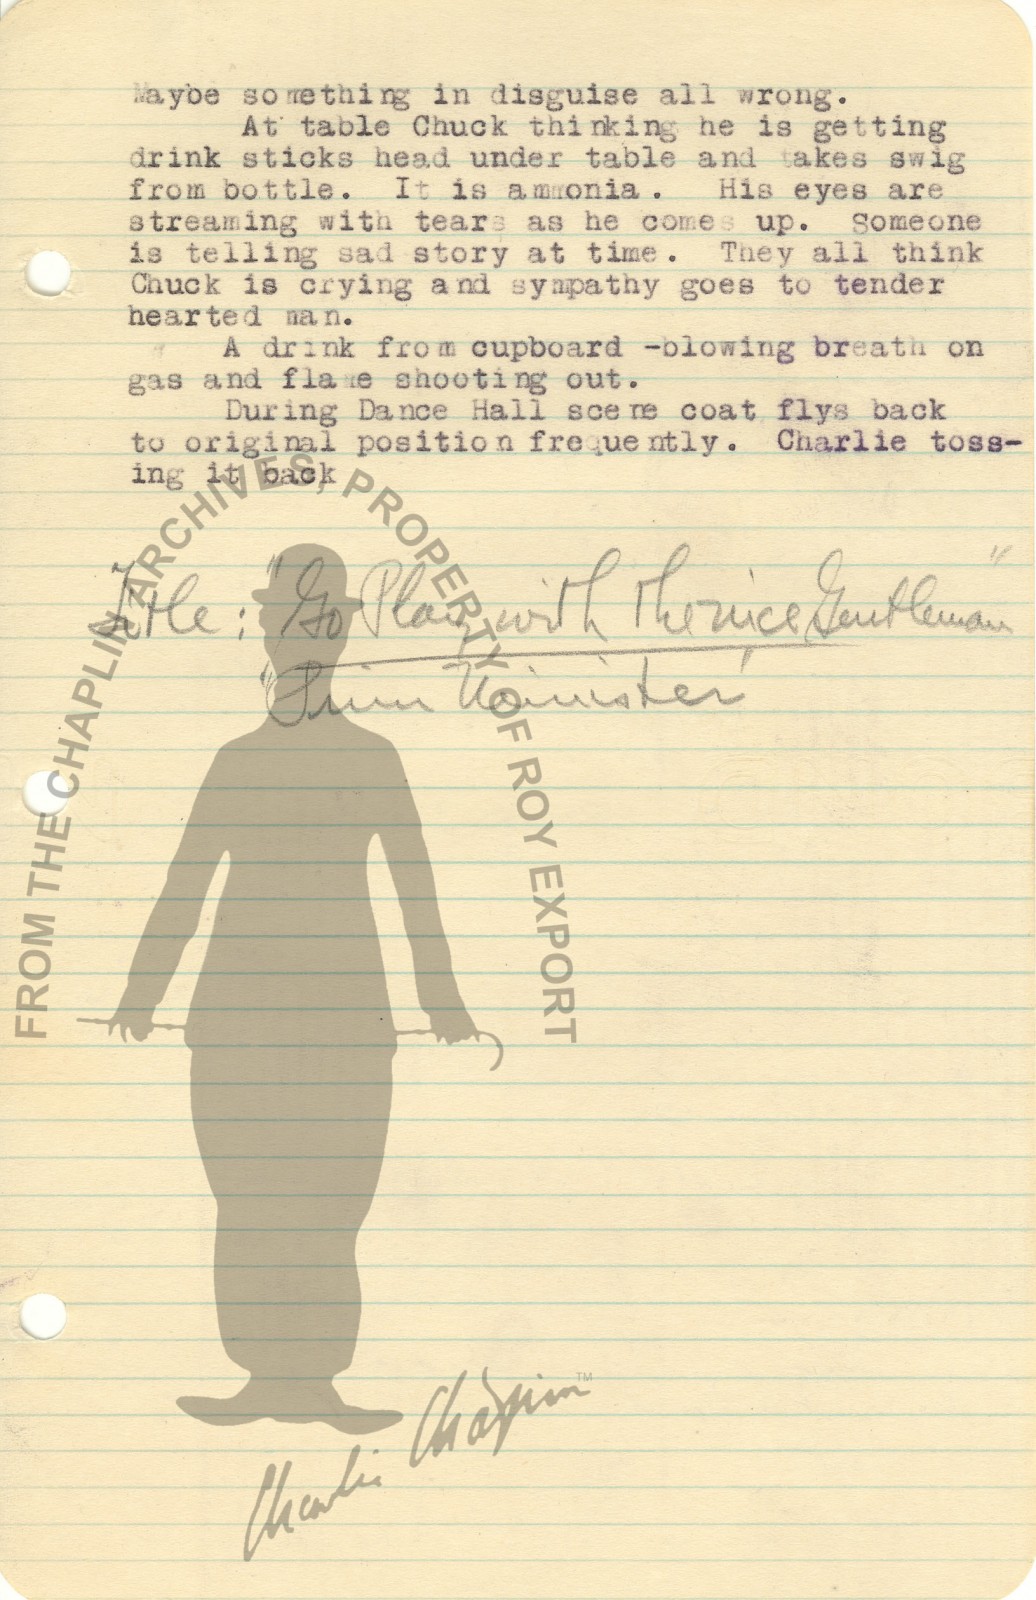 Maybe something in disguise all wrong.
At table Chuck thinking he is getting
drink sticks head under table and takes swig
from bottle. It is ammonia. His eyes are
streaming with tears as he comes up. Someone
is telling sad story at time. They all think
Chuck is crying and sympathy goes to tender
hearted man.
A drink from cupboard -blowing breath on
gas and flame shooting out.
During Dance Hall scene coat flys back
to original position frequently. Charlie toss-
ing it back
Title: "Go Play with the nice Gentleman"
"Prim Minister"
FROM THE CHAPLIN ARCHIVES, PROPERTY OF ROY EXPORT
Charlie Chaplin TM